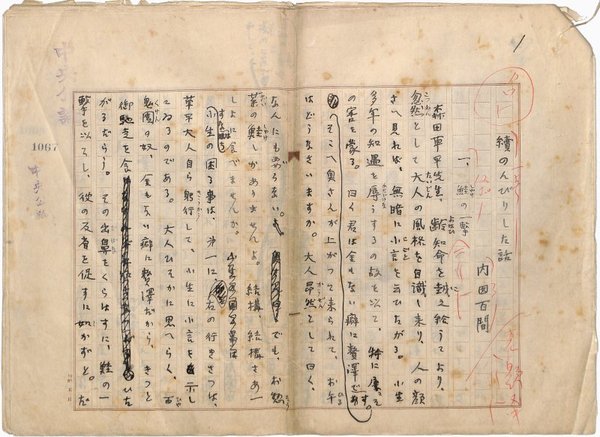 續のんびりした話
内田百間
一、鮭の一撃
森田草平先生、齢知命を越え給うており、
忽然として大人の風格を自識し来り、人の顔
さへ見れば、無暗に小言を云ひたがる。小生
多年の知遇を辱うするの故を以て、特に屢
の害を蒙る。曰く君は金もない癖に贅澤で
す。
そこへ奥さんが上がつて来られて、お午
はどうなさいますか。大人昂然として曰く、
なんにも
でも、お惣
菜の鮭しかありませんよ。結構結構さあ一
しよに食べませんか
右の行きさつは、
草平大人自ら躬行して、小生に小言を示し
てゐるのである。大人ひそかに思へらく、百
鬼園の奴、金もない癖に贅澤だから、きつと
御馳走を食ひた
がるだらう。その出鼻をくらはすに、鮭の一
撃を以てし、彼の反省を促すに如かずと。だ
1067